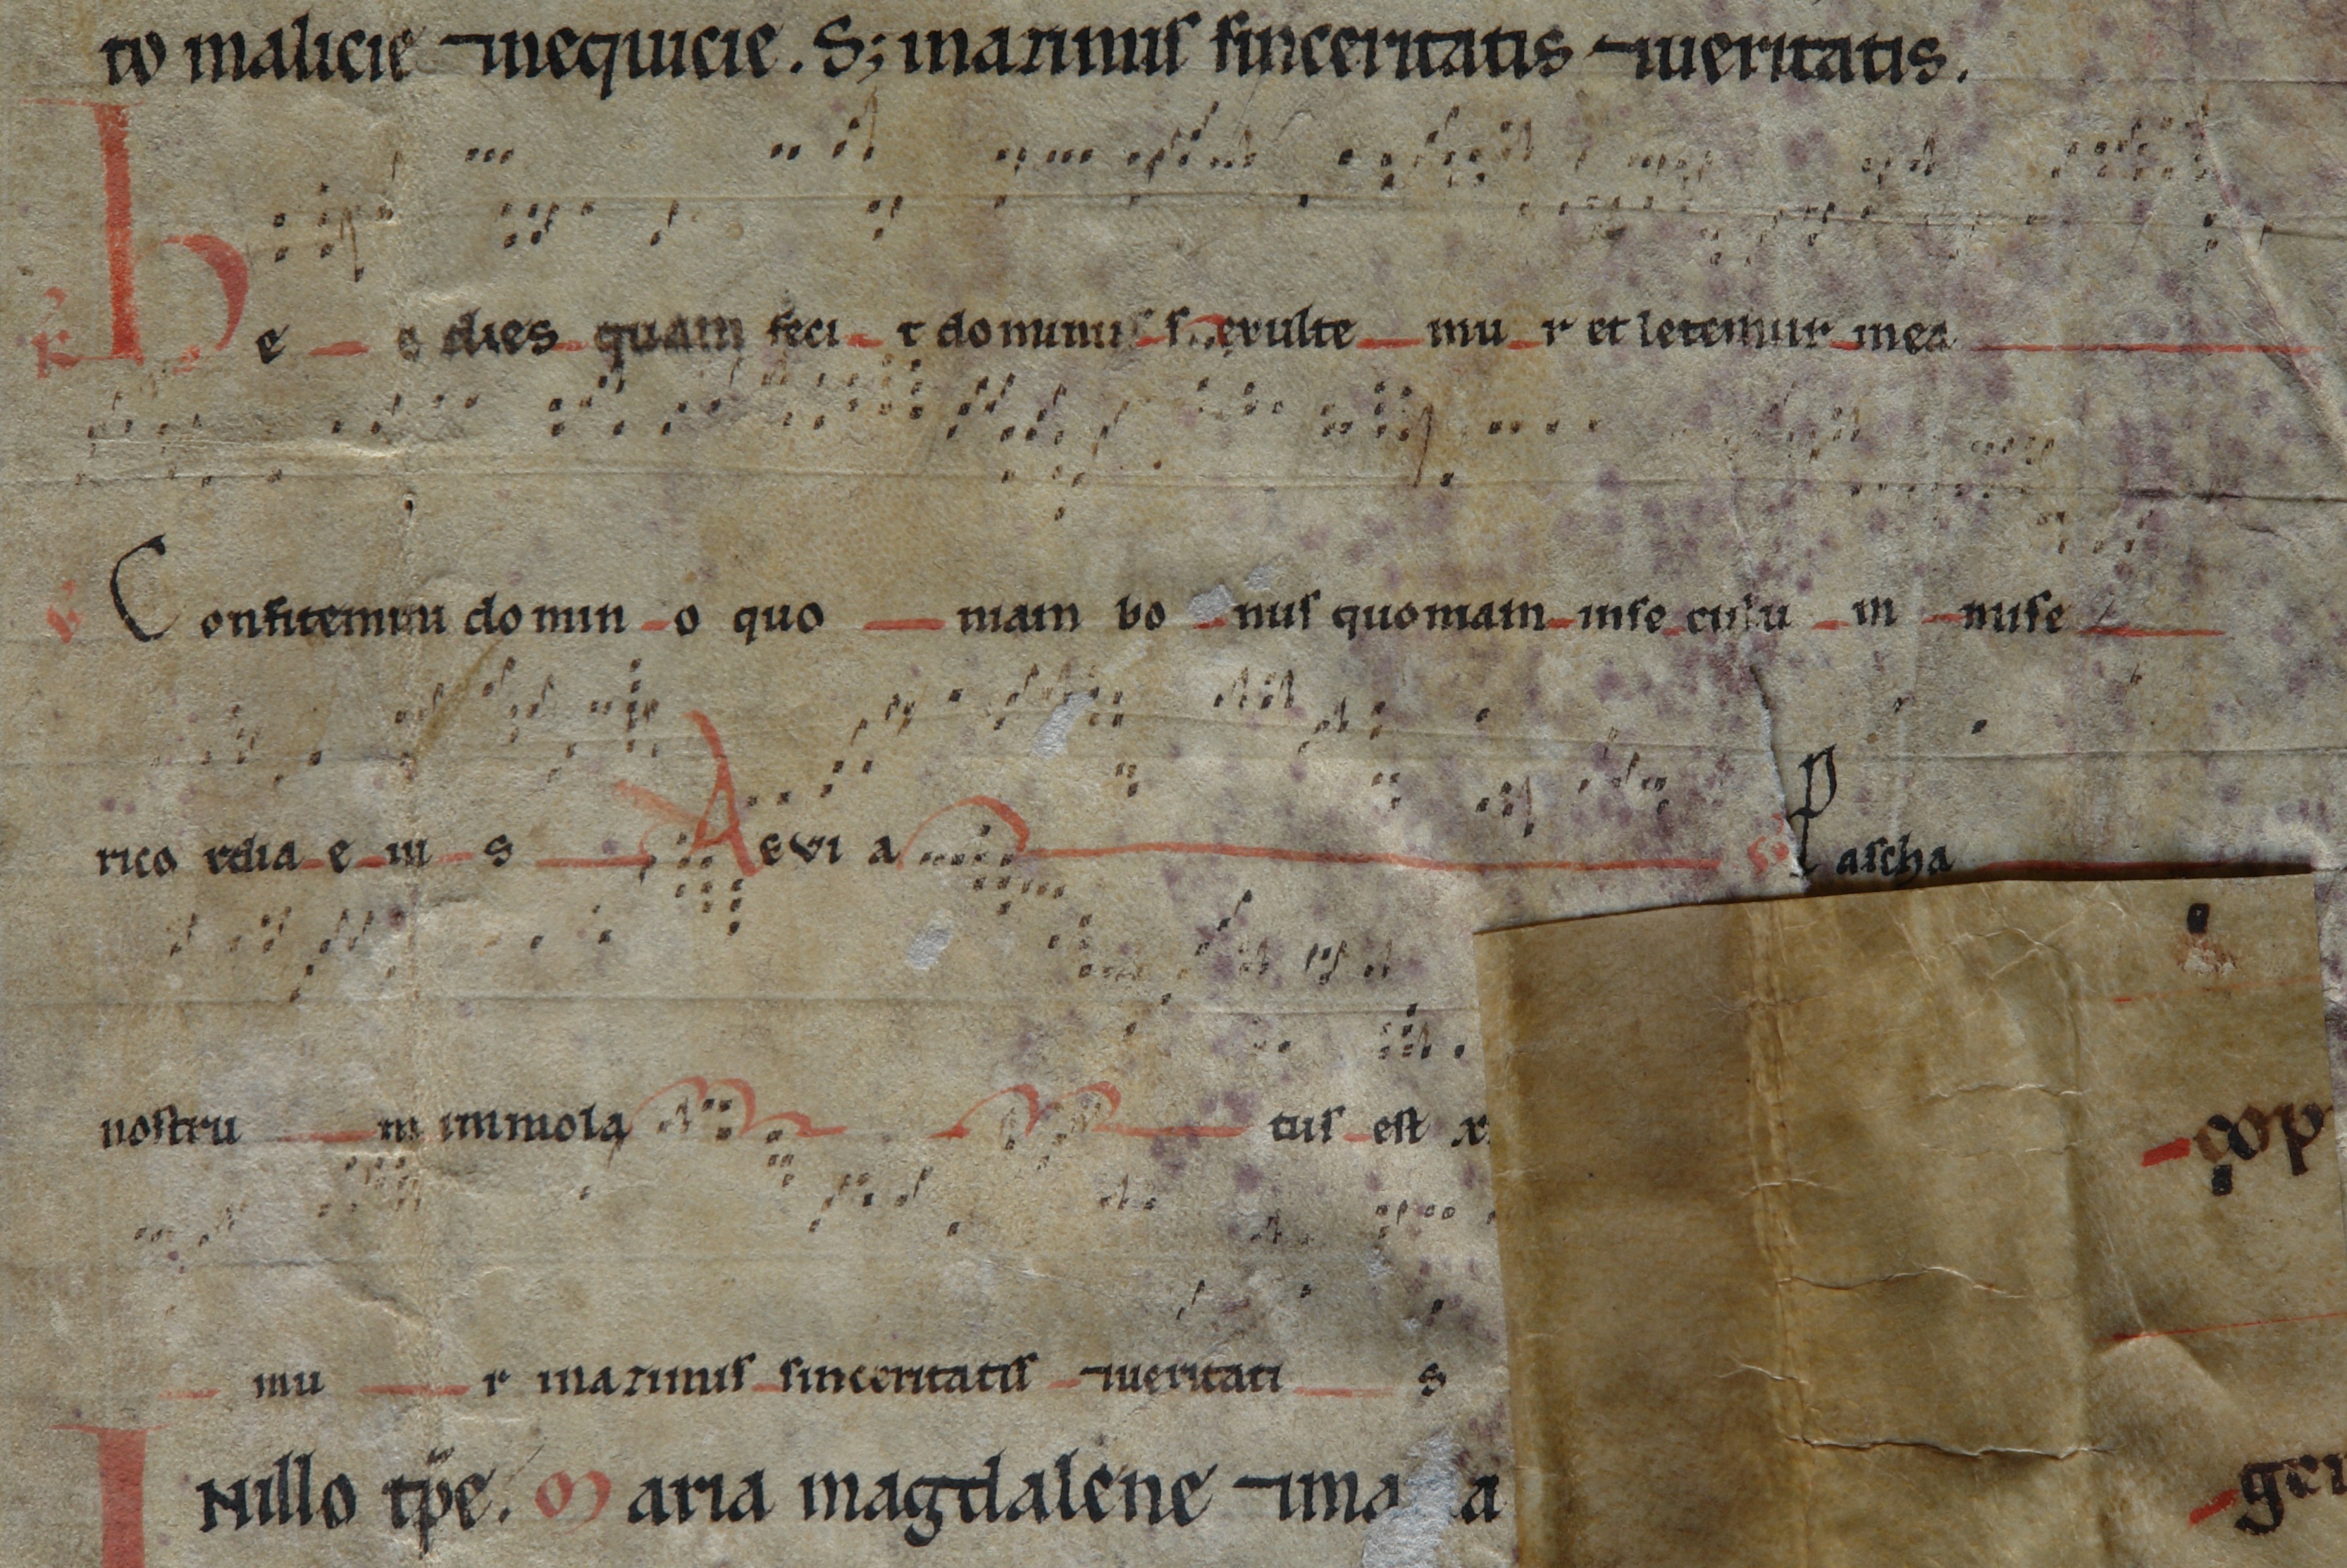 to malicie ⁊ nequicie. S; in azimis sinceritatis ⁊ ueritatis.
He e dies quam feci t dominus exulte mu r et letemur in ea
Confitemini domin o quo niam bo nus quoniam in se culu m mise
rico rdia e iu s Aeuia Pascha
nostru m immola tus est
mu r in azimis sinceritatis ⁊ ueritati s
IN illo tp̄e. Maria magdalene ⁊